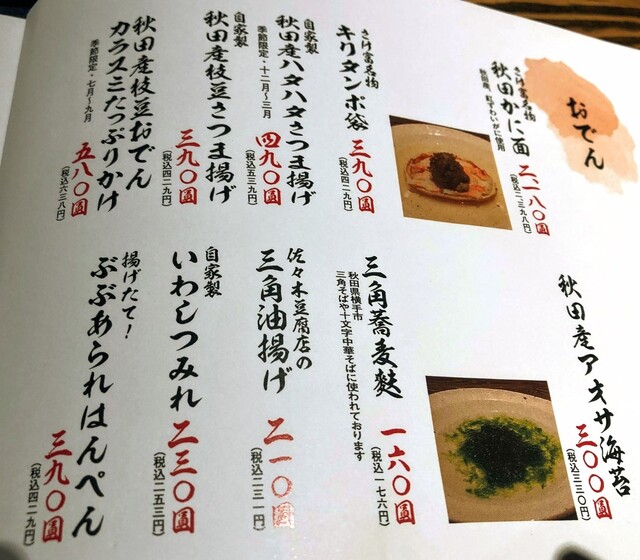 おでん
さけ富名物
秋田かに面
秋田産、紅ずわいがに使用
二、一八〇圓
(税込二、三九八円)
さけ富名物
キリタンポ袋
三九〇圓
(税込四二九円)
自家製
秋田産ハタハタさつま揚げ
季節限定・十二月〜三月
四九〇圓
(税込五三九円)
自家製
秋田産枝豆さつま揚げ
三九〇圓
(税込四二九円)
秋田産枝豆おでん
カラスミたっぷりかけ
季節限定・七月〜九月
五八〇圓
(税込六三八円)
秋田産アオサ海苔
三〇〇圓
(税込三三〇円)
三角蕎麦麩
秋田県横手市
三角そばや十文字中華そばに使われております
一六〇圓
(税込一七六円)
佐々木豆腐店の
三角油揚げ
二一〇圓
(税込二三一円)
自家製
いわしつみれ
二三〇圓
(税込二五三円)
揚げたて!
ぶぶあられはんぺん
三九〇圓
(税込四二九円)